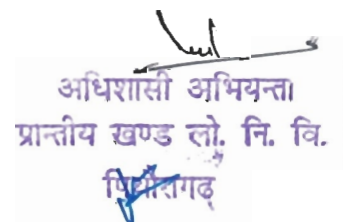 अधिशासी अभियन्ता
प्रान्तीय खण्ड लो. नि. वि.
पिथौरागढ़